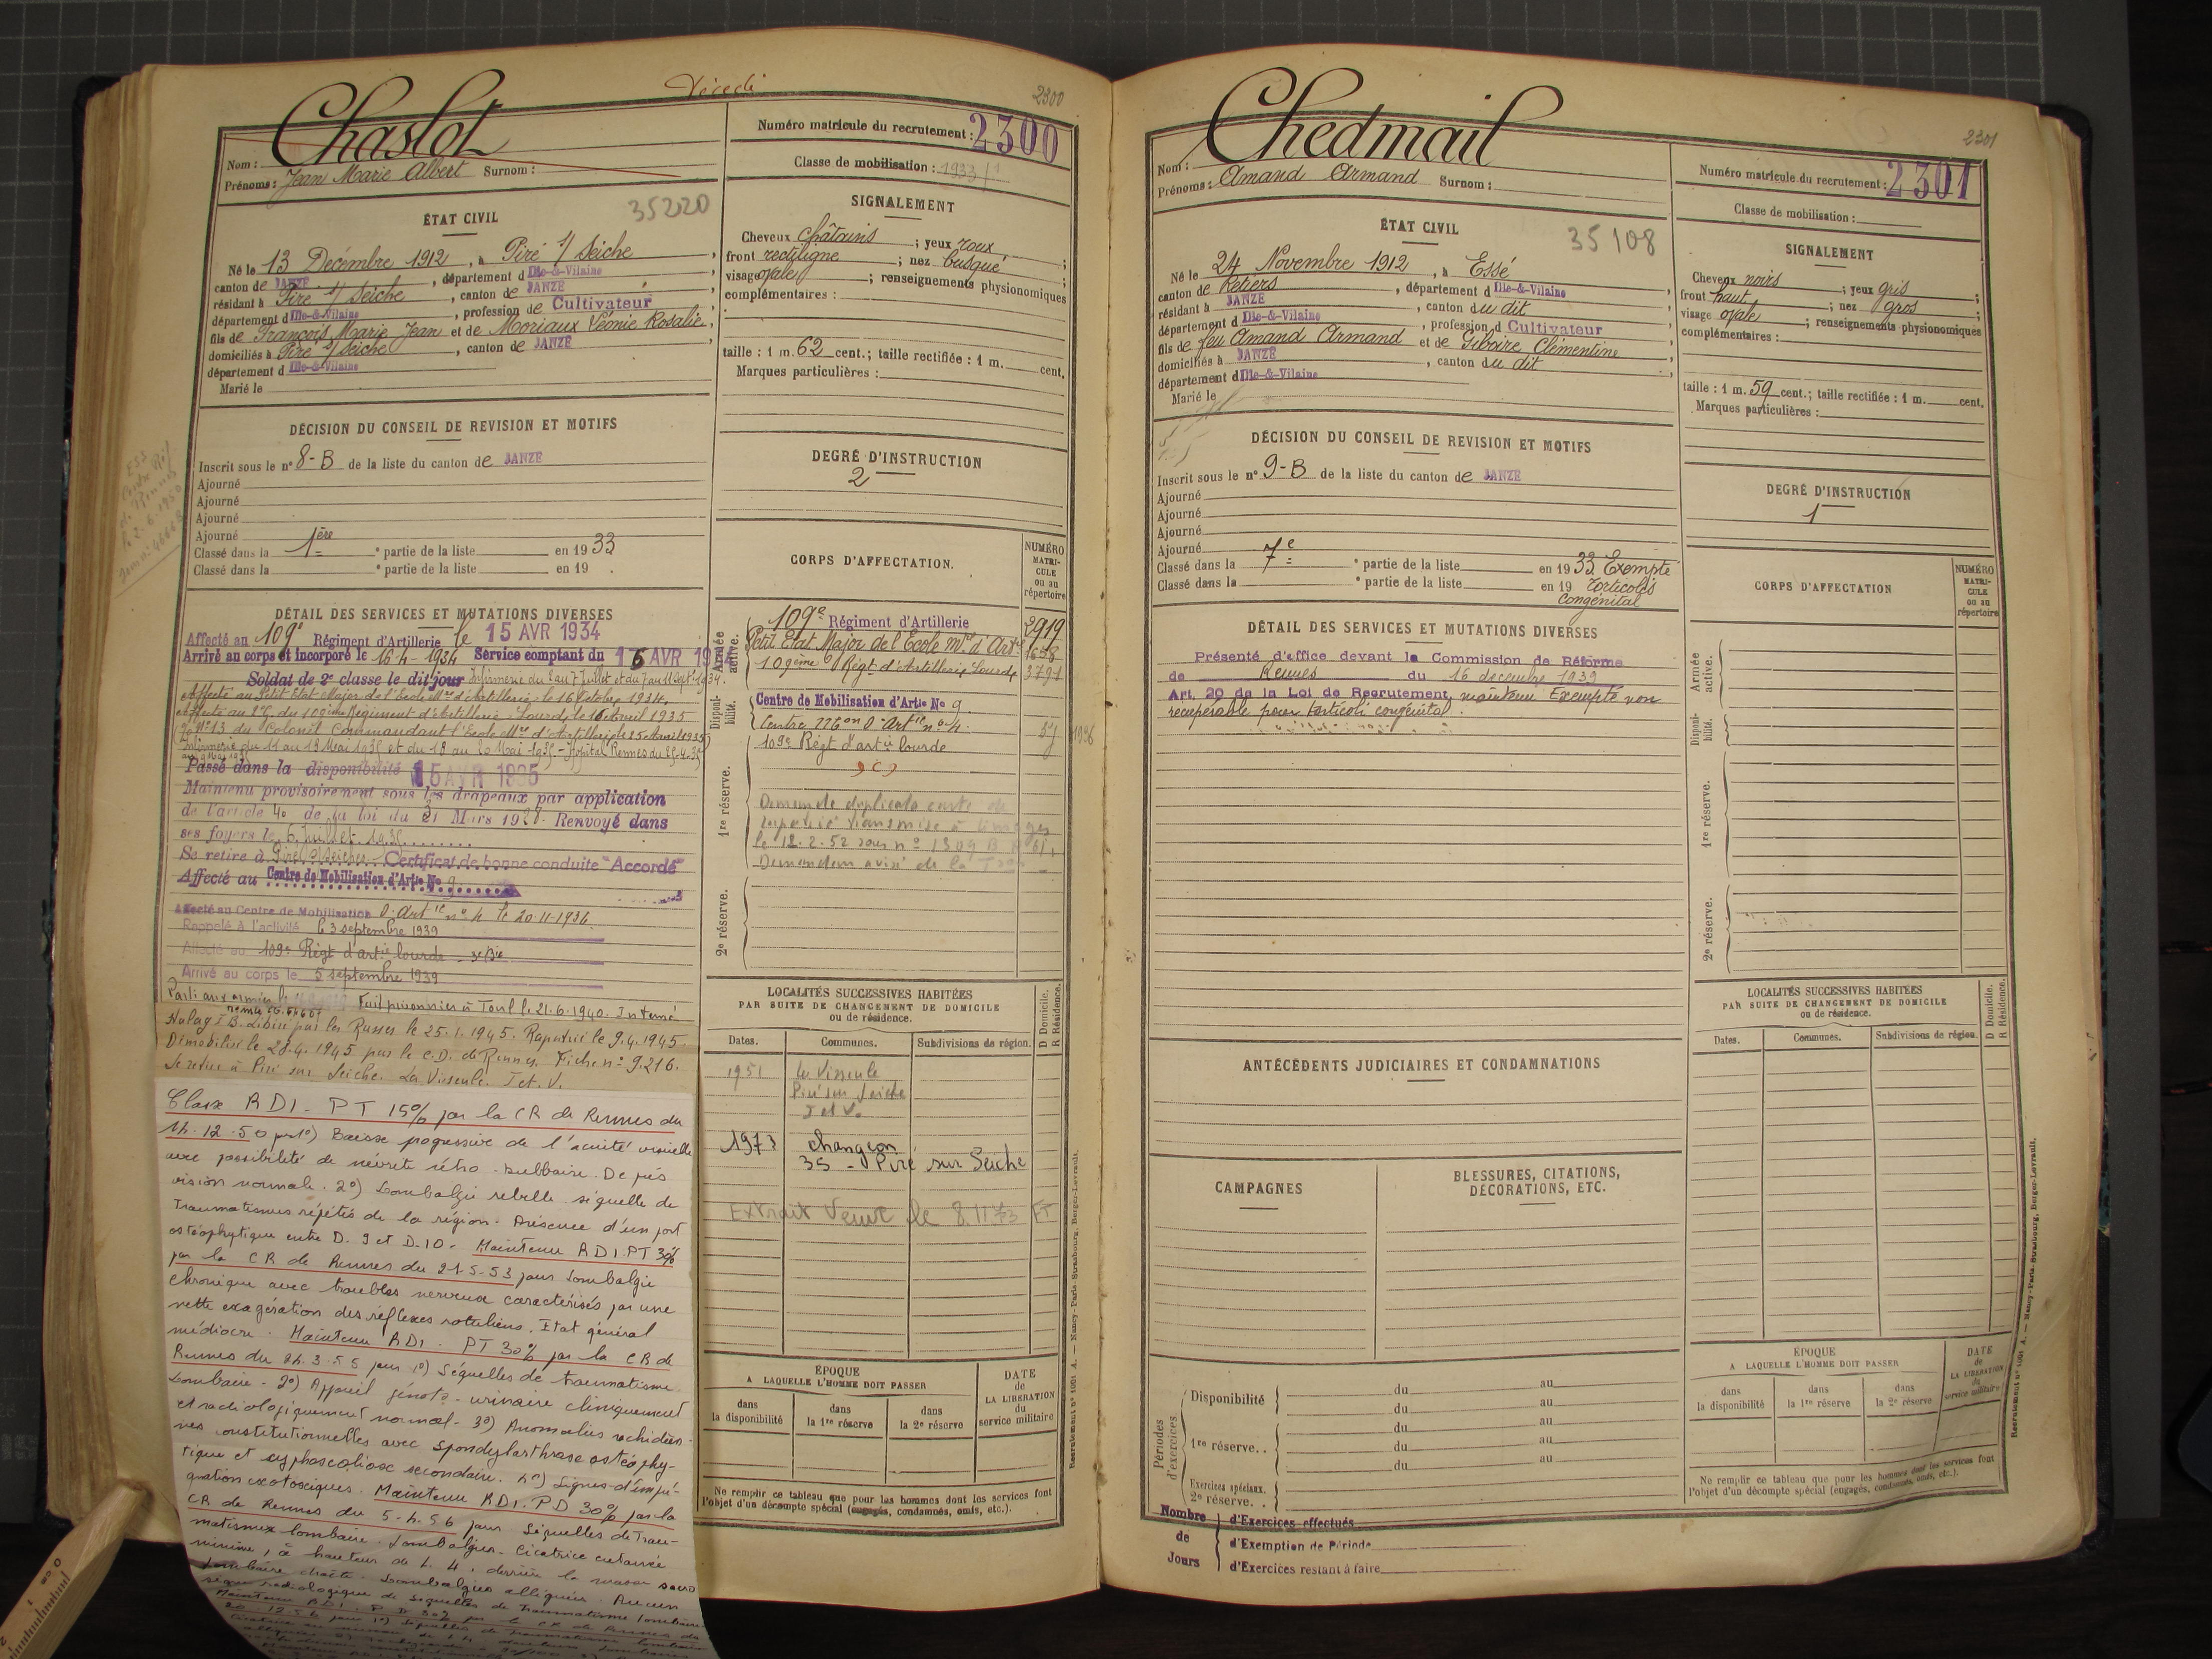 Décédé
2300
Chaslot
Nom :
Prénoms : Jean Marie Albert Surnom :
Numéro matricule du recrutement : 2300
Classe de mobilisation : 1933/1
35220
ÉTAT CIVIL
Né le 13 Décembre 1912, à Piré s/ Seiche,
canton de JANZÉ, département d Ille-&-Vilaine
résidant à Piré s/ Seiche, canton de JANZÉ,
département d Ille-&-Vilaine, profession de Cultivateur
fils de François Marie Jean et de Moriaux Léonie Rosalie,
domiciliés à Piré s/ Seiche, canton de JANZÉ,
département d Ille-&-Vilaine
Marié le
SIGNALEMENT
Cheveux châtains ; yeux roux ;
front rectiligne ; nez busqué ;
visage ovale ; renseignements physionomiques
complémentaires :
taille : 1 m. 62 cent.; taille rectifiée : 1 m. cent.
Marques particulières :
DÉCISION DU CONSEIL DE REVISION ET MOTIFS
Inscrit sous le n° 8-B de la liste du canton de JANZÉ
Ajourné
Ajourné
Ajourné
Ajourné
Classé dans la 1ère partie de la liste en 1933
Classé dans la ° partie de la liste en 19 .
DEGRÉ D'INSTRUCTION
2
DÉTAIL DES SERVICES ET MUTATIONS DIVERSES
Affecté au 109e Régiment d'Artillerie le 15 AVR 1934
Arrivé au corps et incorporé le 16-4-1934 Service comptant du 15 AVR 1934
Soldat de 2e classe le dit jour Infirmerie du 2 au 7 Juillet et du 7 au 11 Sept. 1934.
Affecté au Petit Etat Major de l'Ecole Mre d'Artillerie le 16 Octobre 1934.
Passé dans la disponibilité 15 AVR 1935
Maintenu provisoirement sous les drapeaux par application
de l'article 40 de la loi du 31 Mars 1928. Renvoyé dans
ses foyers le 6 Juillet 1935
Se retire à Piré s/ Seiche Certificat de bonne conduite "Accordé"
Affecté au Centre de Mobilisation d'Artie No 9
Affecté au Centre de Mobilisation d'Artie n° 4 le 20-11-1936.
Rappelé à l'activité le 3 septembre 1939
Affecté au 109e Régt d'artie lourde
Arrivé au corps le 5 septembre 1939
Parti aux armées le Fait prisonnier à Toul le 21.6.1940. Interné
Stalag I B. Libéré par les Russes le 25.1.1945. Rapatrié le 9.4.1945.
Démobilisé le 28.4.1945 par le C.D. de Rennes. Fiche n° 9.216.
Se retire à Piré sur Seiche. La Visseule. I et V.
Classé RD1 - PT 15% par la CR de Rennes du
14.12.50 pr 1°) Baisse progressive de l'acuité visuelle
avec possibilité de névrite rétro-bulbaire. De près
vision normale. 2°) Lombalgie rebelle séquelle de
Traumatismes répétés de la région. Présence d'un pont
ostéophytique entre D.9 et D.10 - Maintenu RD1. PT 30%
par la CR de Rennes du 21-5-53 pour Lombalgie
chronique avec troubles nerveux caractérisés par une
nette exagération des réflexes rotuliens. Etat général
médiocre. Maintenu RD1. PT 30% par la CR de
Rennes du 24.3.55 pour 1°) Séquelles de traumatisme
Lombaire - 2°) Appareil génito-urinaire cliniquement
et radiologiquement normal - 3°) Anomalies rachidien-
nes constitutionnelles avec Spondylarthrose ostéophy-
tique et cyphoscoliose secondaire. 4°) Signes d'impré-
gnation exotoxiques. Maintenu RD1. PD 30% par la
CR de Rennes du 5-4-56 pour Séquelles de Trau-
matismes lombaire. Lombalgies. Cicatrice cutanée
minime, à hauteur de L.4, derrière la masse sacro
lombaire droite. Lombalgies alléguées. Aucun
signe radiologique de séquelles de Traumatisme lombaire
CORPS D'AFFECTATION.
NUMÉRO MATRICULE ou au répertoire
Armée active.
109e Régiment d'Artillerie 2919
Petit Etat Major de l'Ecole Mre d'Artie 1658
109ème Régt d'Artillerie Lourde 3791
Disponibilité.
Centre de Mobilisation d'Artie No 9.
Centre Mobon d'Artie n° 4. 57 1936
109e Régt d'artie lourde
1re réserve.
Demande duplicata carte de
rapatrié transmise à Limoges
le 12.2.52 sous n° 1309
2e réserve.
LOCALITÉS SUCCESSIVES HABITÉES
PAR SUITE DE CHANGEMENT DE DOMICILE
ou de résidence.
D Domicile. R Résidence.
Dates. Communes. Subdivisions de région.
1951 La Visseule
Piré sur Seiche
I et V.
1973 Changeon
35 - Piré sur Seiche
Extrait Veuve le 8.11.73 FT
ÉPOQUE
A LAQUELLE L'HOMME DOIT PASSER
DATE de LA LIBÉRATION du service militaire
dans la disponibilité
dans la 1re réserve
dans la 2e réserve
Ne remplir ce tableau que pour les hommes dont les services font
l'objet d'un décompte spécial (engagés, condamnés, omis, etc.).
Recrutement n° 1001 A. — Nancy-Paris-Strasbourg, Berger-Levrault.
2301
Chedmail
Nom :
Prénoms : Amand Armand Surnom :
Numéro matricule du recrutement : 2301
Classe de mobilisation :
35108
ÉTAT CIVIL
Né le 24 Novembre 1912, à Essé
canton de Retiers, département d Ille-&-Vilaine
résidant à JANZÉ, canton du dit
département d Ille-&-Vilaine, profession d Cultivateur
fils de feu Amand Armand et de Giboire Clémentine
domiciliés à JANZÉ, canton du dit
département d Ille-&-Vilaine
Marié le
SIGNALEMENT
Cheveux noirs ; yeux gris ;
front haut ; nez gros ;
visage ovale ; renseignements physionomiques
complémentaires :
taille : 1 m. 59 cent.; taille rectifiée : 1 m. cent.
Marques particulières :
DÉCISION DU CONSEIL DE REVISION ET MOTIFS
Inscrit sous le n° 9-B de la liste du canton de JANZÉ
Ajourné
Ajourné
Ajourné
Ajourné
Classé dans la 7e ° partie de la liste en 1933 Exempté
Classé dans la ° partie de la liste en 19 Torticolis
congénital
DEGRÉ D'INSTRUCTION
1
DÉTAIL DES SERVICES ET MUTATIONS DIVERSES
Présenté d'office devant la Commission de Réforme
de Rennes du 16 décembre 1939
Art. 20 de la Loi de Recrutement, maintenu Exempté non
récupérable pour torticoli congénital.
CORPS D'AFFECTATION
NUMÉRO MATRICULE ou au répertoire
Armée active.
Disponibilité.
1re réserve.
2e réserve.
ANTÉCÉDENTS JUDICIAIRES ET CONDAMNATIONS
LOCALITÉS SUCCESSIVES HABITÉES
PAR SUITE DE CHANGEMENT DE DOMICILE
ou de résidence.
D Domicile. R Résidence.
Dates. Communes. Subdivisions de région.
CAMPAGNES
BLESSURES, CITATIONS,
DÉCORATIONS, ETC.
Périodes d'exercices
Disponibilité du au
du au
1re réserve. . du au
du au
du au
Exercices spéciaux.
2e réserve. .
Nombre de Jours
d'Exercices effectués
d'Exemption de Période
d'Exercices restant à faire
ÉPOQUE
A LAQUELLE L'HOMME DOIT PASSER
DATE de LA LIBÉRATION du service militaire
dans la disponibilité
dans la 1re réserve
dans la 2e réserve
Ne remplir ce tableau que pour les hommes dont les services font
l'objet d'un décompte spécial (engagés, condamnés, omis, etc.).
Recrutement n° 1001 A. — Nancy-Paris-Strasbourg, Berger-Levrault.